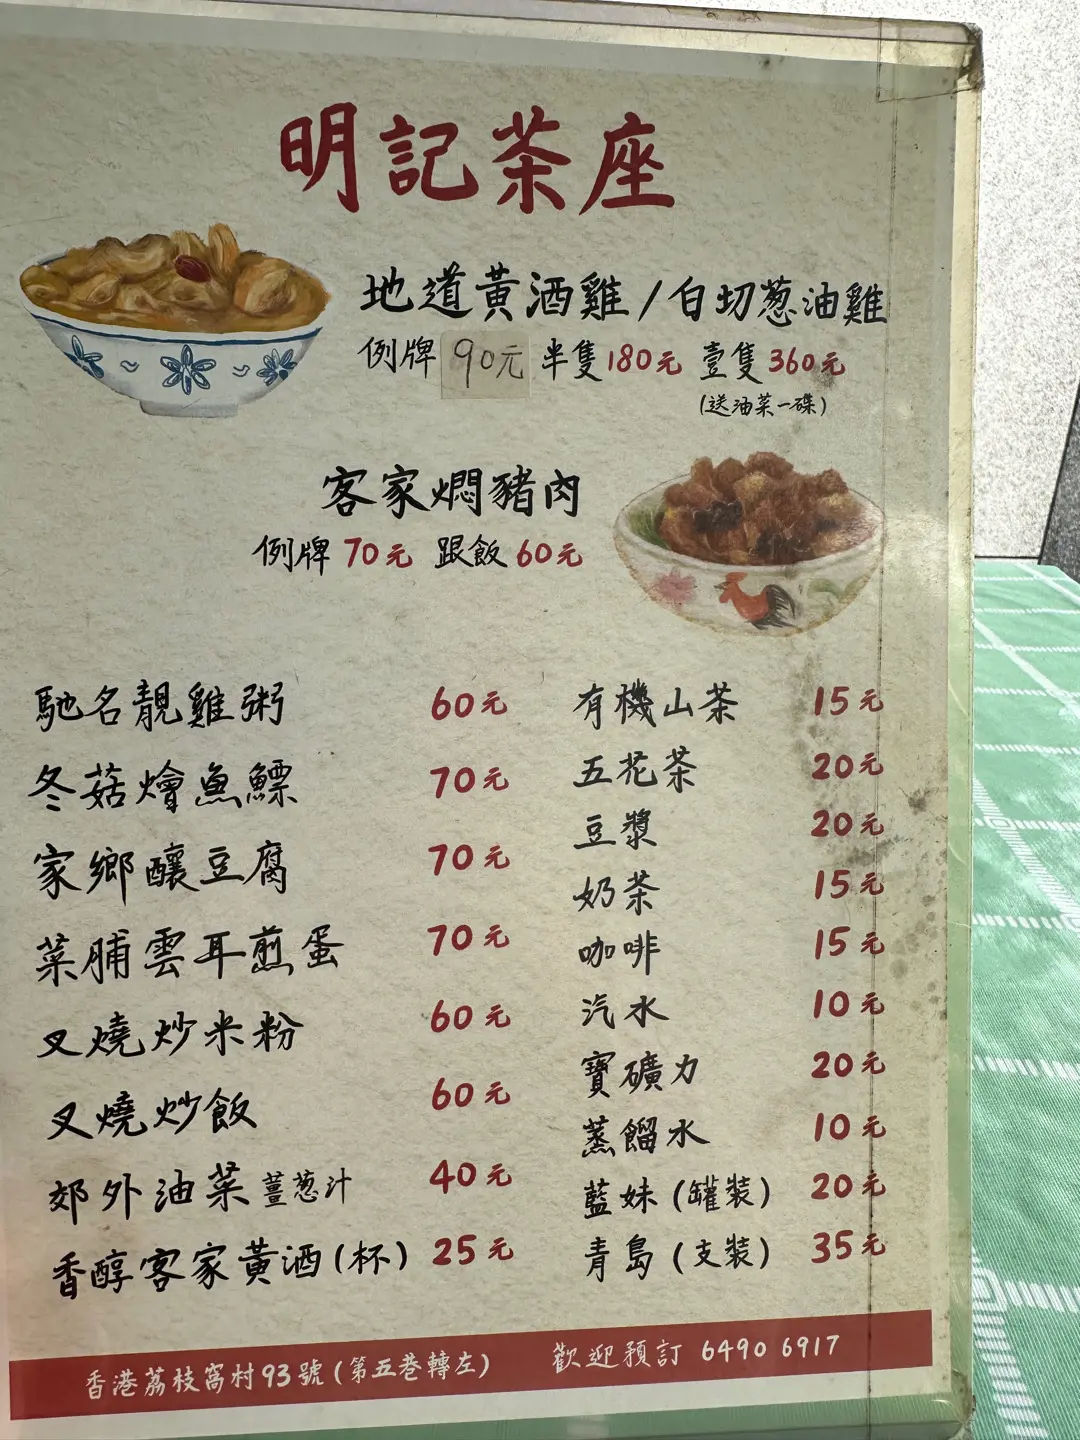 明記茶座
地道黃酒雞/白切葱油雞
例牌 90元 半隻180元 壹隻360元
(送油菜一碟)
客家燜豬肉
例牌 70元 跟飯 60元
馳名靚雞粥 60元
冬菇燴魚鰾 70元
家鄉釀豆腐 70元
菜脯雲耳煎蛋 70元
叉燒炒米粉 60元
叉燒炒飯 60元
郊外油菜 薑葱汁 40元
香醇客家黃酒(杯) 25元
有機山茶 15元
五花茶 20元
豆漿 20元
奶茶 15元
咖啡 15元
汽水 10元
寶礦力 20元
蒸餾水 10元
藍妹(罐裝) 20元
青島(支裝) 35元
香港荔枝窩村93號(第五巷轉左) 歡迎預訂 6490 6917